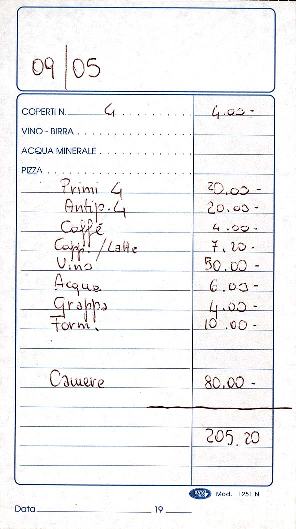 09/05
COPERTI N. 4 4.00-
VINO - BIRRA
ACQUA MINERALE
PIZZA
Primi 4 20.00-
Antip. 4 20.00-
Caffé 4.00-
Capp. / Latte 7,20-
Vino 50.00-
Acqua 6.00-
Grappa 4.00-
Form. 10.00-
Camere 80.00-
205.20
Mod. 1251 N
Data 19